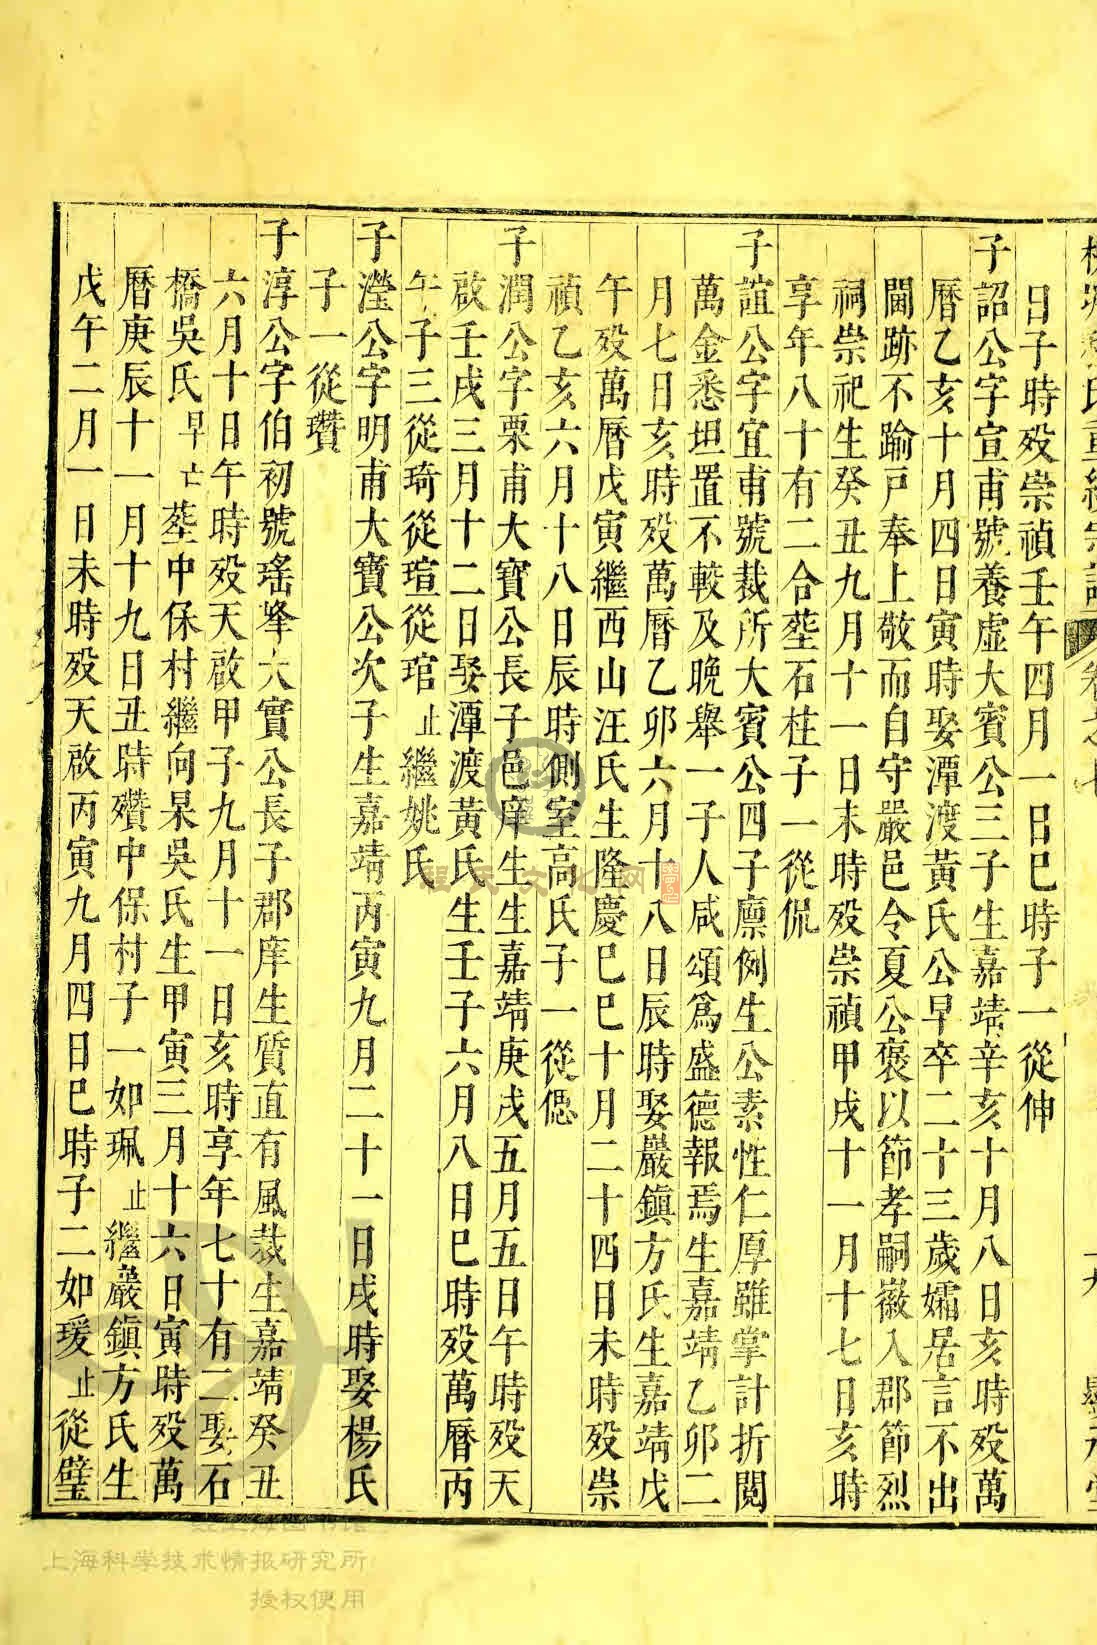 日子時歿崇禎壬午四月一日巳時子一從伸
子詔公字宣甫號養虛大賓公三子生嘉靖辛亥十月八日亥時歿萬
曆乙亥十月四日寅時娶潭渡黃氏公早卒二十三歲孀居言不出
閫跡不踰戶奉上敬而自守嚴邑令夏公褒以節孝嗣徽入郡節烈
祠崇祀生癸丑九月十一日未時歿崇禎甲戌十一月十七日亥時
享年八十有二合塟石柱子一從侃
子誼公字宜甫號裁所大賓公四子廩例生公素性仁厚雖掌計折閱
萬金悉坦置不較及晚舉一子人咸頌為盛德報焉生嘉靖乙卯二
月七日亥時歿萬曆乙卯六月十八日辰時娶嚴鎮方氏生嘉靖戊
午歿萬曆戊寅繼西山汪氏生隆慶巳巳十月二十四日未時歿崇
禎乙亥六月十八日辰時側室高氏子一從偲
子潤公字栗甫大寶公長子邑庠生生嘉靖庚戌五月五日午時歿天
啟壬戌三月十二日娶潭渡黃氏生壬子六月八日巳時歿萬曆丙
午子三從琦從瑄從琯止繼姚氏
子瀅公字明甫大寶公次子生嘉靖丙寅九月二十一日戌時娶楊氏
子一從瓚
子淳公字伯初號瑤峯大實公長子郡庠生質直有風裁生嘉靖癸丑
六月十日午時歿天啟甲子九月十一日亥時享年七十有二娶石
橋吳氏早亡塟中保村繼向杲吳氏生甲寅三月十六日寅時歿萬
曆庚辰十一月十九日丑時殯中保村子一如珮止繼嚴鎮方氏生
戊午二月一日未時歿天啟丙寅九月四日巳時子二如瑗止從璧
程氏文化网
上海科学技术情报研究所
授权使用